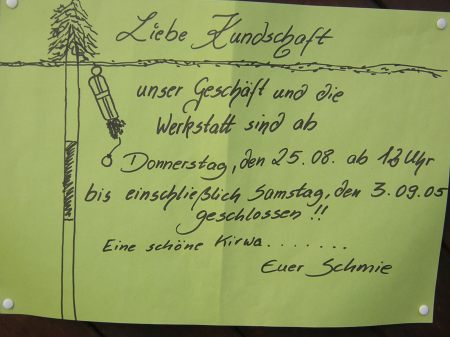 Liebe Kundschaft
unser Geschäft und die
Werkstatt sind ab
Donnerstag, den 25.08. ab 12 Uhr
bis einschließlich Samstag, den 3.09.05
geschlossen !!
Eine schöne Kirwa.......
Euer Schmie